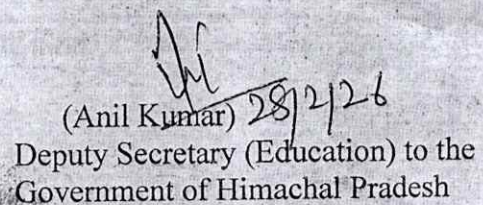 (Anil Kumar) 28/2/26
Deputy Secretary (Education) to the
Government of Himachal Pradesh